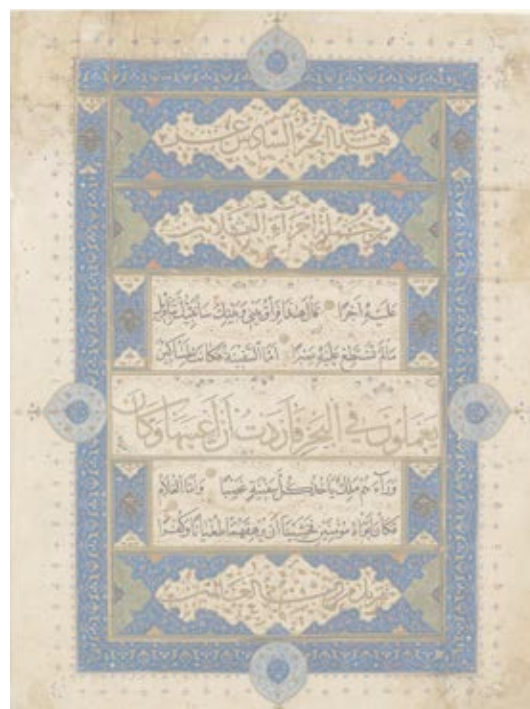 هذا الجزء السادس عشر
من جملة اجزاء الثلاثين
عَلَيْهِ اَجْرًا قَالَ هٰذَا فِرَاقُ بَيْنِي وَبَيْنِكَ سَاُنَبِّئُكَ بِتَأْوِيلِ
مَا لَمْ تَسْتَطِعْ عَلَيْهِ صَبْرًا اَمَّا السَّفِينَةُ فَكَانَتْ لِمَسَاكِينَ
يَعْمَلُونَ فِي الْبَحْرِ فَاَرَدْتُ اَنْ اَعِيبَهَا وَكَانَ
وَرَآءَهُمْ مَلِكٌ يَأْخُذُ كُلَّ سَفِينَةٍ غَصْبًا وَاَمَّا الْغُلَامُ
فَكَانَ اَبَوَاهُ مُؤْمِنَيْنِ فَخَشِينَا اَنْ يُرْهِقَهُمَا طُغْيَانًا وَكُفْرًا
تنزيل من رب العالمين